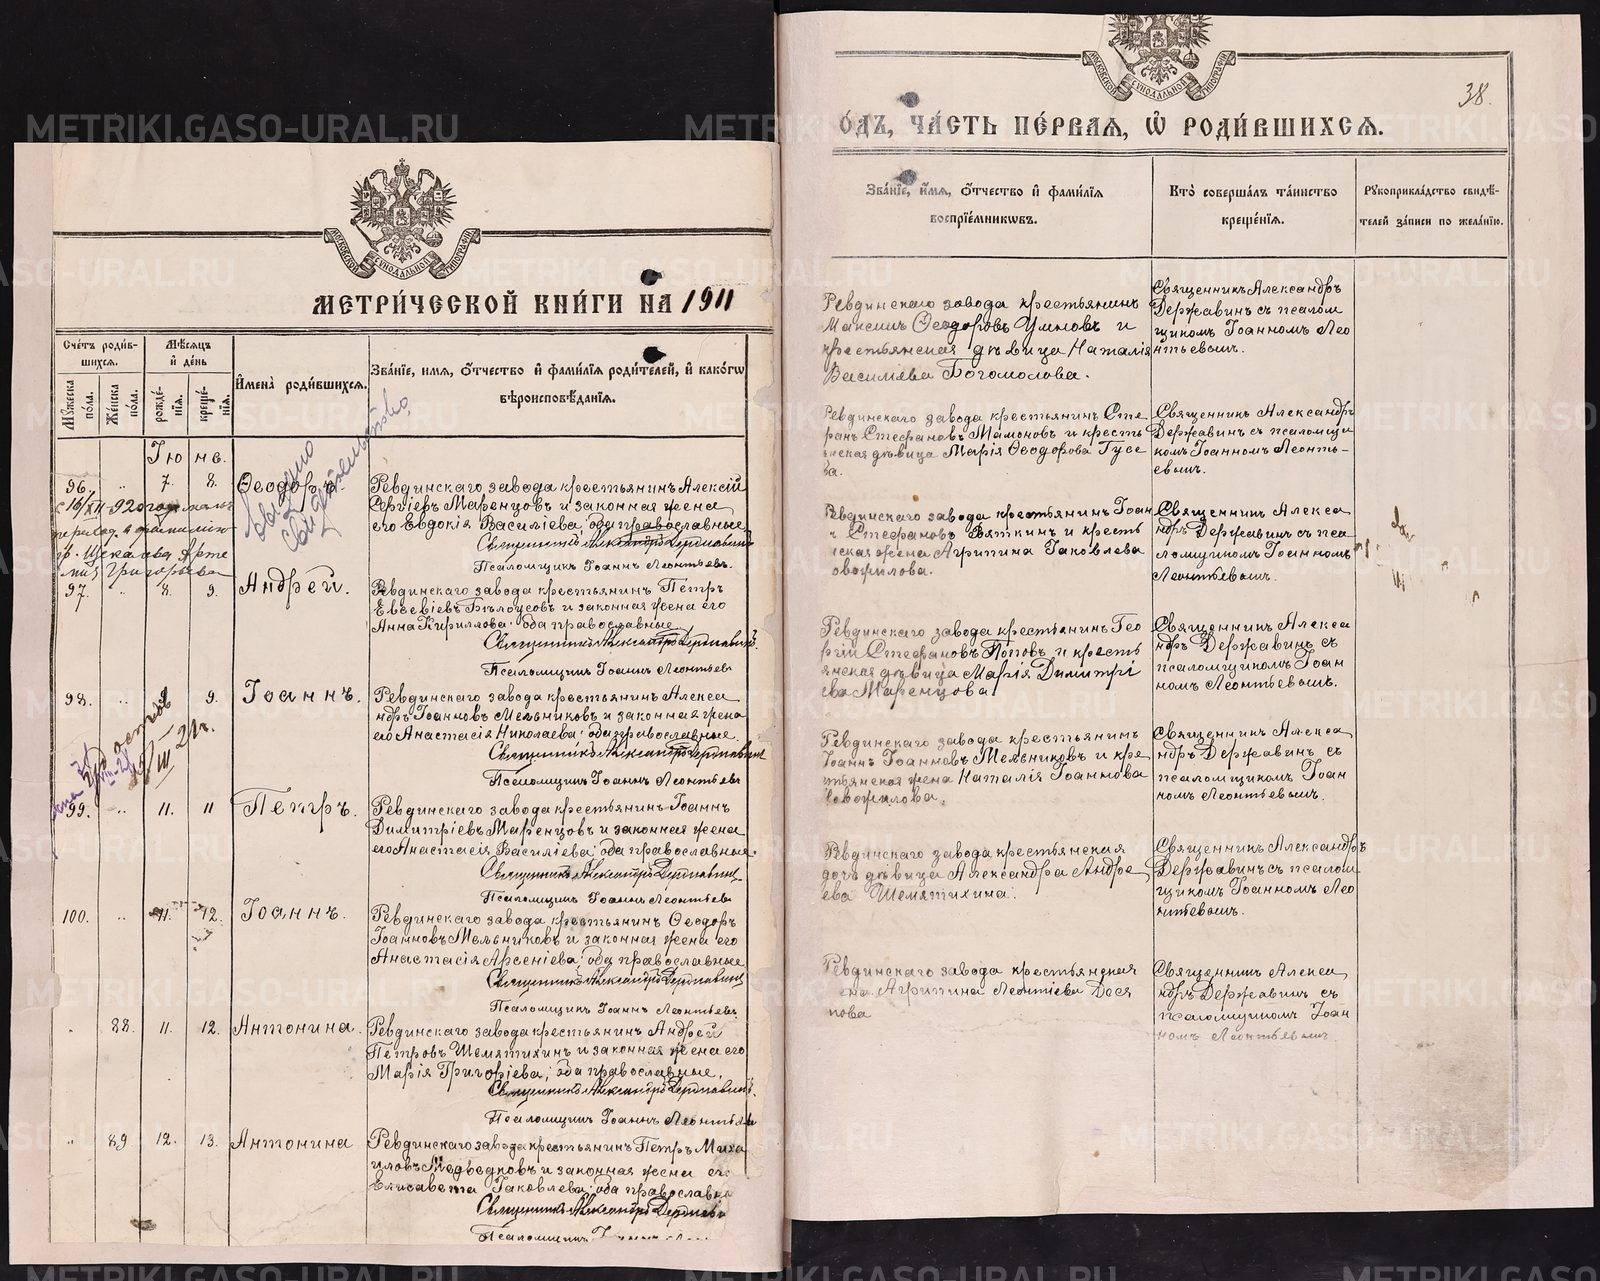 МЕТРИ́ЧЕСКОЙ КНИ́ГИ НА 1911
Сче́тъ роди́в-
шихся.
Мѣ́сяцъ
и де́нь
Му́жеска
по́ла.
Же́нска
пола.
рожде́-
нія.
креще́-
нія.
Имена̀ роди́вшихся.
Зва́ніе, имя, о́тчество и фами́лія роди́телей, и како́гѡ
вѣроисповѣ́данія.
Выдано
свидѣтельство
Іюнь.
96. „ 7. 8. Ѳеодоръ.
Ревдинскаго завода крестьянинъ Алексій
Сергіевъ Маренцовъ и законная жена
его Евдокія Василіева, оба православные.
Священникъ Александръ Державинъ
Псаломщикъ Іоаннъ Леонтьевъ.
97. „ 8. 9. Андрей.
Ревдинскаго завода крестьянинъ Петръ
Евсевіевъ Бѣлоусовъ и законная жена его
Анна Кириллова; оба православные
Священникъ Александръ Державинъ.
Псаломщикъ Іоаннъ Леонтьев
98. „ 9. Іоаннъ.
Ревдинскаго завода крестьянинъ Алекса
ндръ Іоанновъ Мельниковъ и законная жена
его Анастасія Николаева; оба православные.
Священникъ Александръ Державинъ
Псаломщикъ Іоаннъ Леонтьев
99. „ 11. 11 Петръ.
Ревдинскаго завода крестьянинъ Іоаннъ
Димитріевъ Маренцовъ и законная жена
его Анастасія Василіева; оба православные.
Священникъ Александръ Державинъ
Псаломщикъ Іоаннъ Леонтьев
100. „ 11. 12. Іоаннъ.
Ревдинскаго завода крестьянинъ Ѳеодоръ
Іоанновъ Мельниковъ и законная жена его
Анастасія Арсеніева; оба православные
Священникъ Александръ Державинъ
Псаломщикъ Іоаннъ Леонтьевъ
„ 88. 11. 12. Антонина.
Ревдинскаго завода крестьянинъ Андрей
Петровъ Шемятихинъ и законная жена его
Марія Григоріева; оба православные.
Священникъ Александръ Державинъ.
Псаломщикъ Іоаннъ Леонтьев
„ 89 12. 13. Антонина
Ревдинскаго завода крестьянинъ Петръ Миха
иловъ Медвѣдковъ и законная жена его
Елисавета Іаковлева; оба православные
Священникъ Александръ Державинъ
Псаломщикъ
38.
О́ДЪ, ЧА́СТЬ ПЕ́РВАЯ, Ѡ РОДИ́ВШИХСЯ.
Зва́ніе, и́мя, о́тчество и фами́лія
воспріе́мникѡвъ.
Кто̀ соверша́лъ та́инство
креще́нія.
Рукоприкла́дство свидѣ́-
телей за́писи по жела́нію.
Ревдинскаго завода крестьянинъ
Максимъ Ѳеодоровъ Умновъ и
крестьянская дѣвица Наталія
Василіева Богомолова.
Священникъ Александръ
Державинъ съ псалом
щикомъ Іоанномъ Лео
нтьевымъ.
Ревдинскаго завода крестьянинъ Сте
фанъ Стефановъ Мамоновъ и кресть
янская дѣвица Марія Ѳеодорова Гусе
ва.
Священникъ Александръ
Державинъ съ псаломщи
комъ Іоанномъ Леонть-
евымъ.
Ревдинскаго завода крестьянинъ Іоан
ъ Стефановъ Вяткинъ и кресть
янская жена Агрипина Іаковлева
Священникъ Алекса
ндръ Державинъ съ пса
ломщикомъ Іоанномъ
Леонтьевымъ.
Ревдинскаго завода крестьянинъ Гео
ргій Стефановъ Поповъ и кресть
янская дѣвица Марія Димитрі
ева Маренцова
Священникъ Алекса
ндръ Державинъ съ
псаломщикомъ Іоан
номъ Леонтьевымъ.
Ревдинскаго завода крестьянинъ
Іоаннъ Іоанновъ Мельниковъ и кре
стьянская жена Наталія Іоаннова
Священникъ Алекса
ндръ Державинъ съ
псаломщикомъ Іоан
номъ Леонтьевымъ.
Ревдинскаго завода крестьянская
дочь дѣвица Александра Андре
ева Шемятихина.
Священникъ Александръ
Державинъ съ псалом
щикомъ Іоанномъ Лео
нтьевымъ.
Ревдинскаго завода крестьянская
жена Агрипина Леонтіева
Священникъ Алекса
ндръ Державинъ съ
псаломщикомъ Іоан
номъ Леонтьевымъ
METRIKI.GASO-URAL.RU